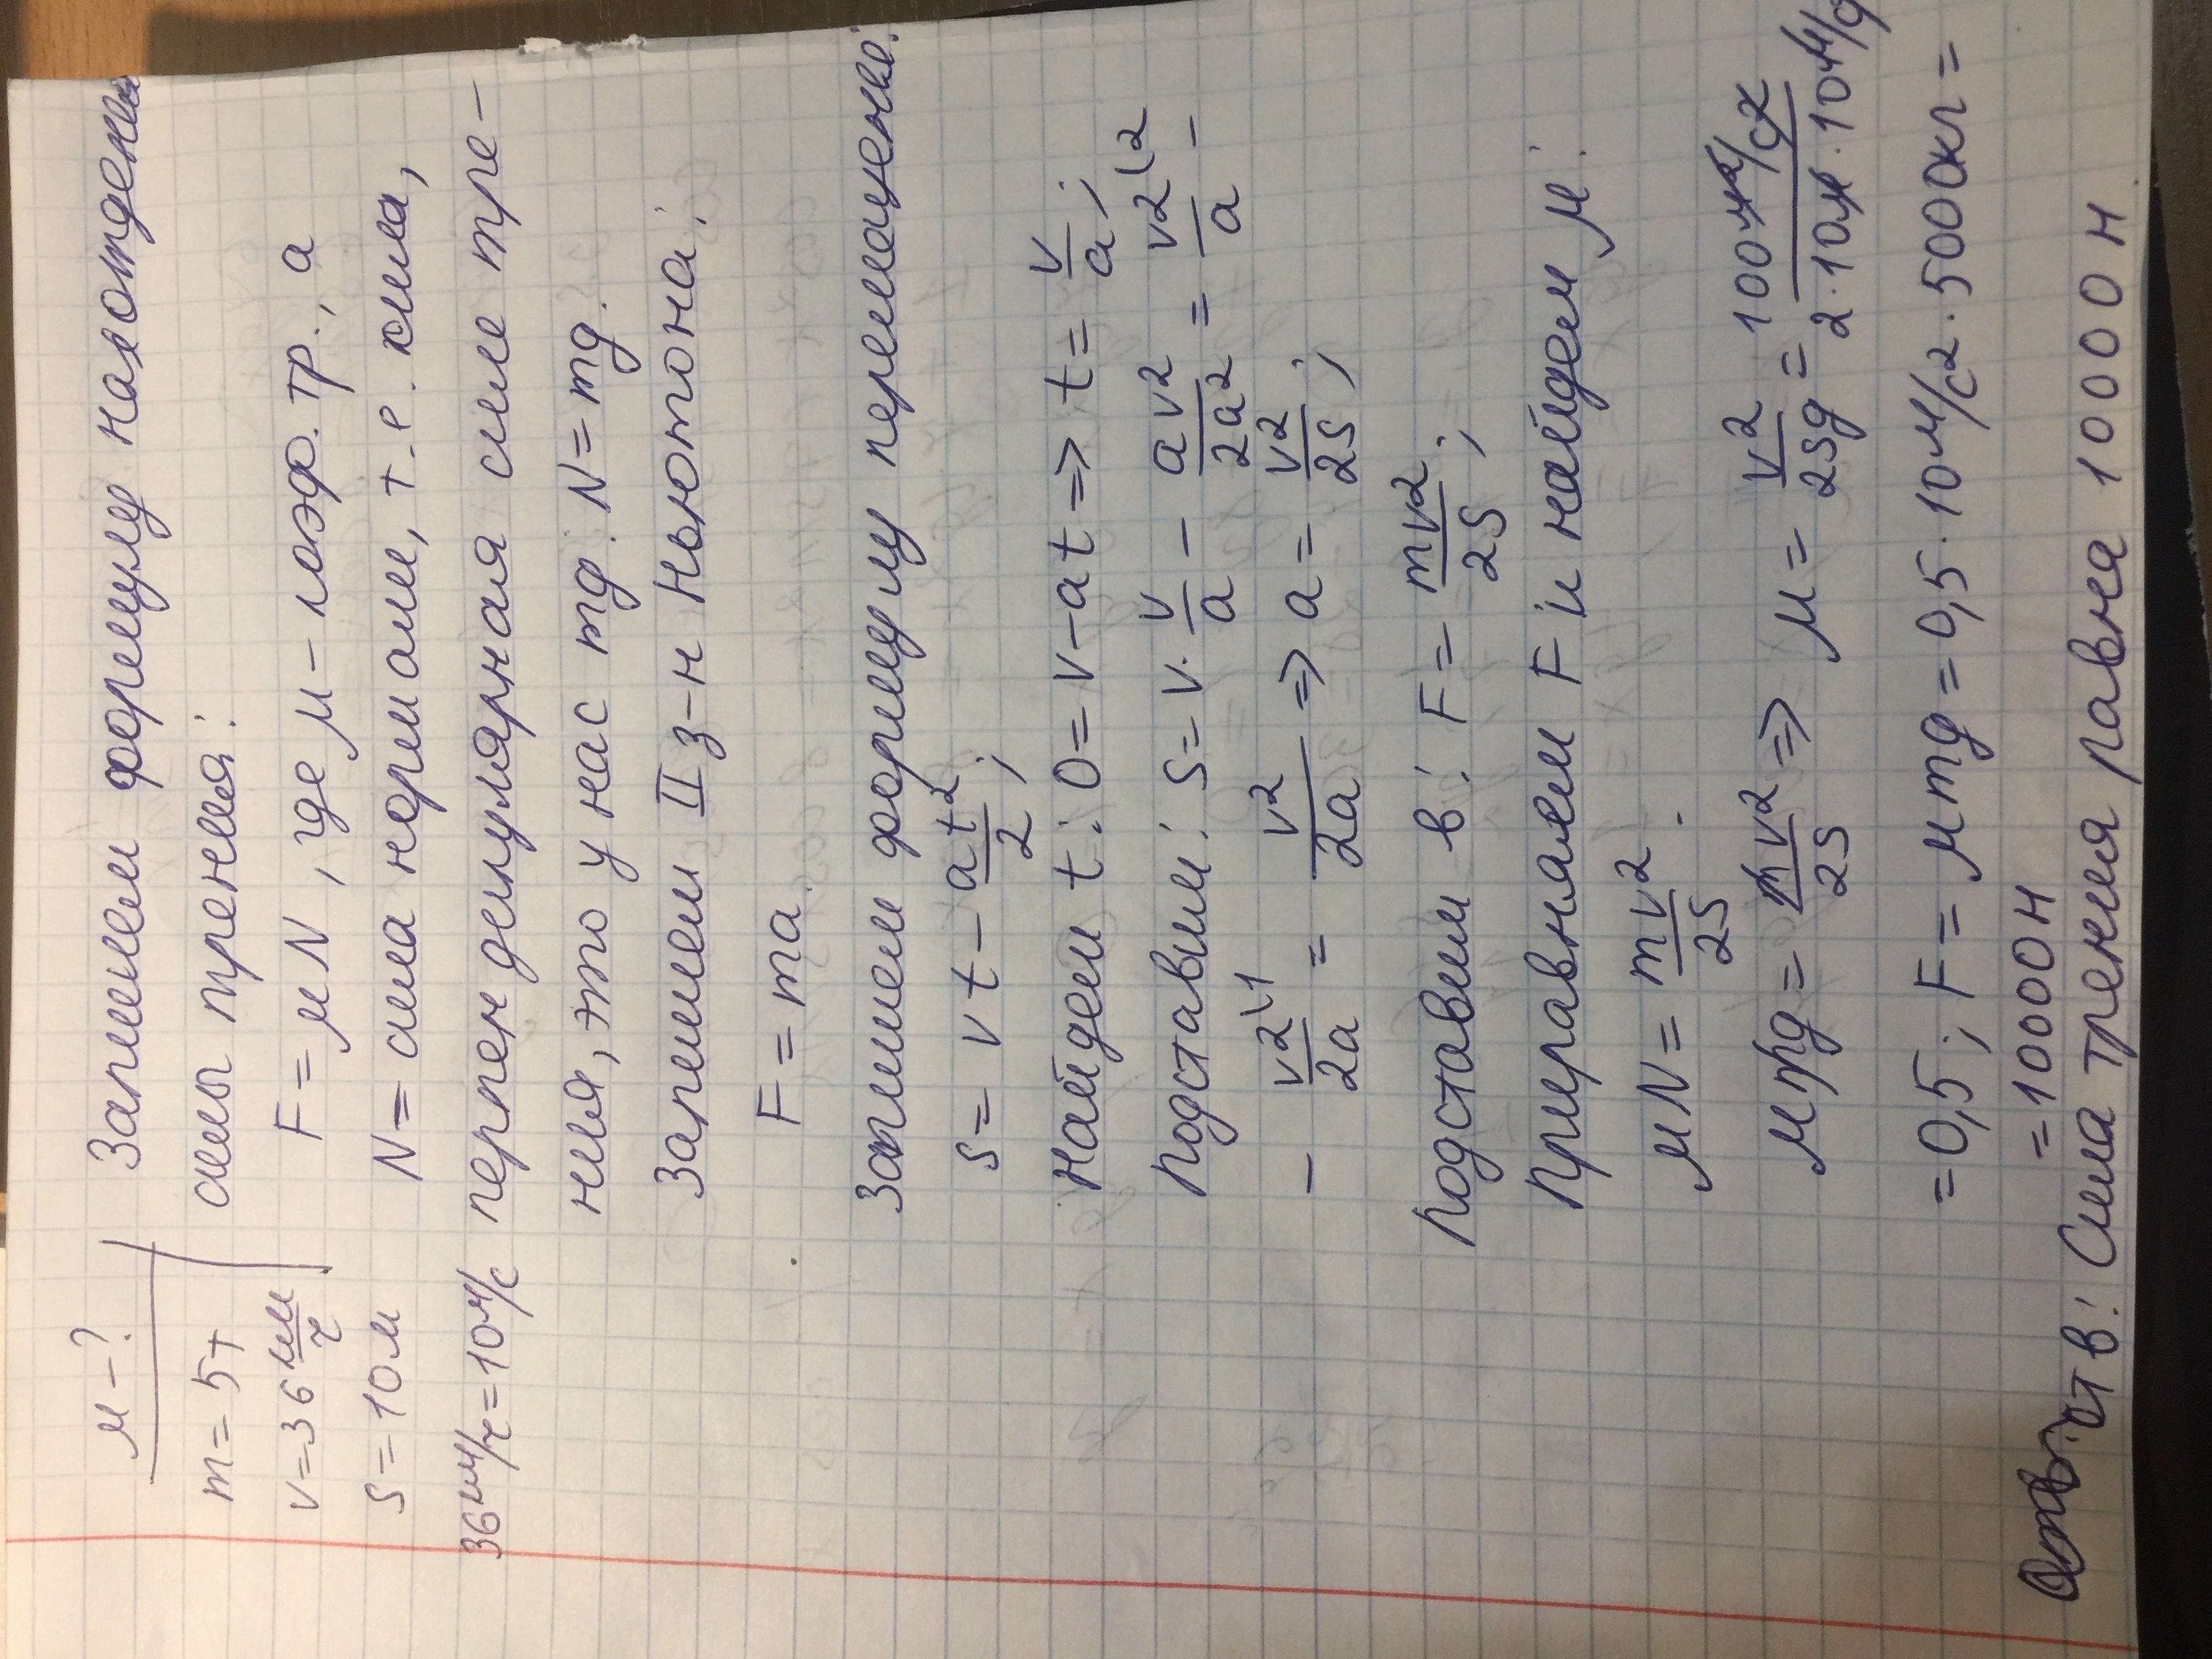 μ - ?
m = 5т
v = 36 км/ч
s = 10 м
36 км/ч = 10 м/с
Запишем формулу нахождения
силы трения:
F = μN, где μ - коэф. тр., а
N = сила нормали, т.е. сила,
перпендикулярная силе тре-
ния, это у нас mg. N = mg.
Запишем II з-н Ньютона:
F = ma.
Запишем формулу перемещения:
s = vt - at²/2;
Найдем t: 0 = v - at => t = v/a;
Подставим: s = v · v/a - av²/2a² = v²/a \2 -
- v²/2a \1 = v²/2a => a = v²/2s;
Подставим в: F = mv²/2s;
Приравняем F и найдем μ:
μN = mv²/2s.
μmg = mv²/2s => μ = v²/2sg = 100 м²/с²/2·10м·10 м/с²
= 0,5; F = μmg = 0,5 · 10 м/с2 · 5000кг =
= 10000 Н
Отв: Сила трения равна 10000 Н